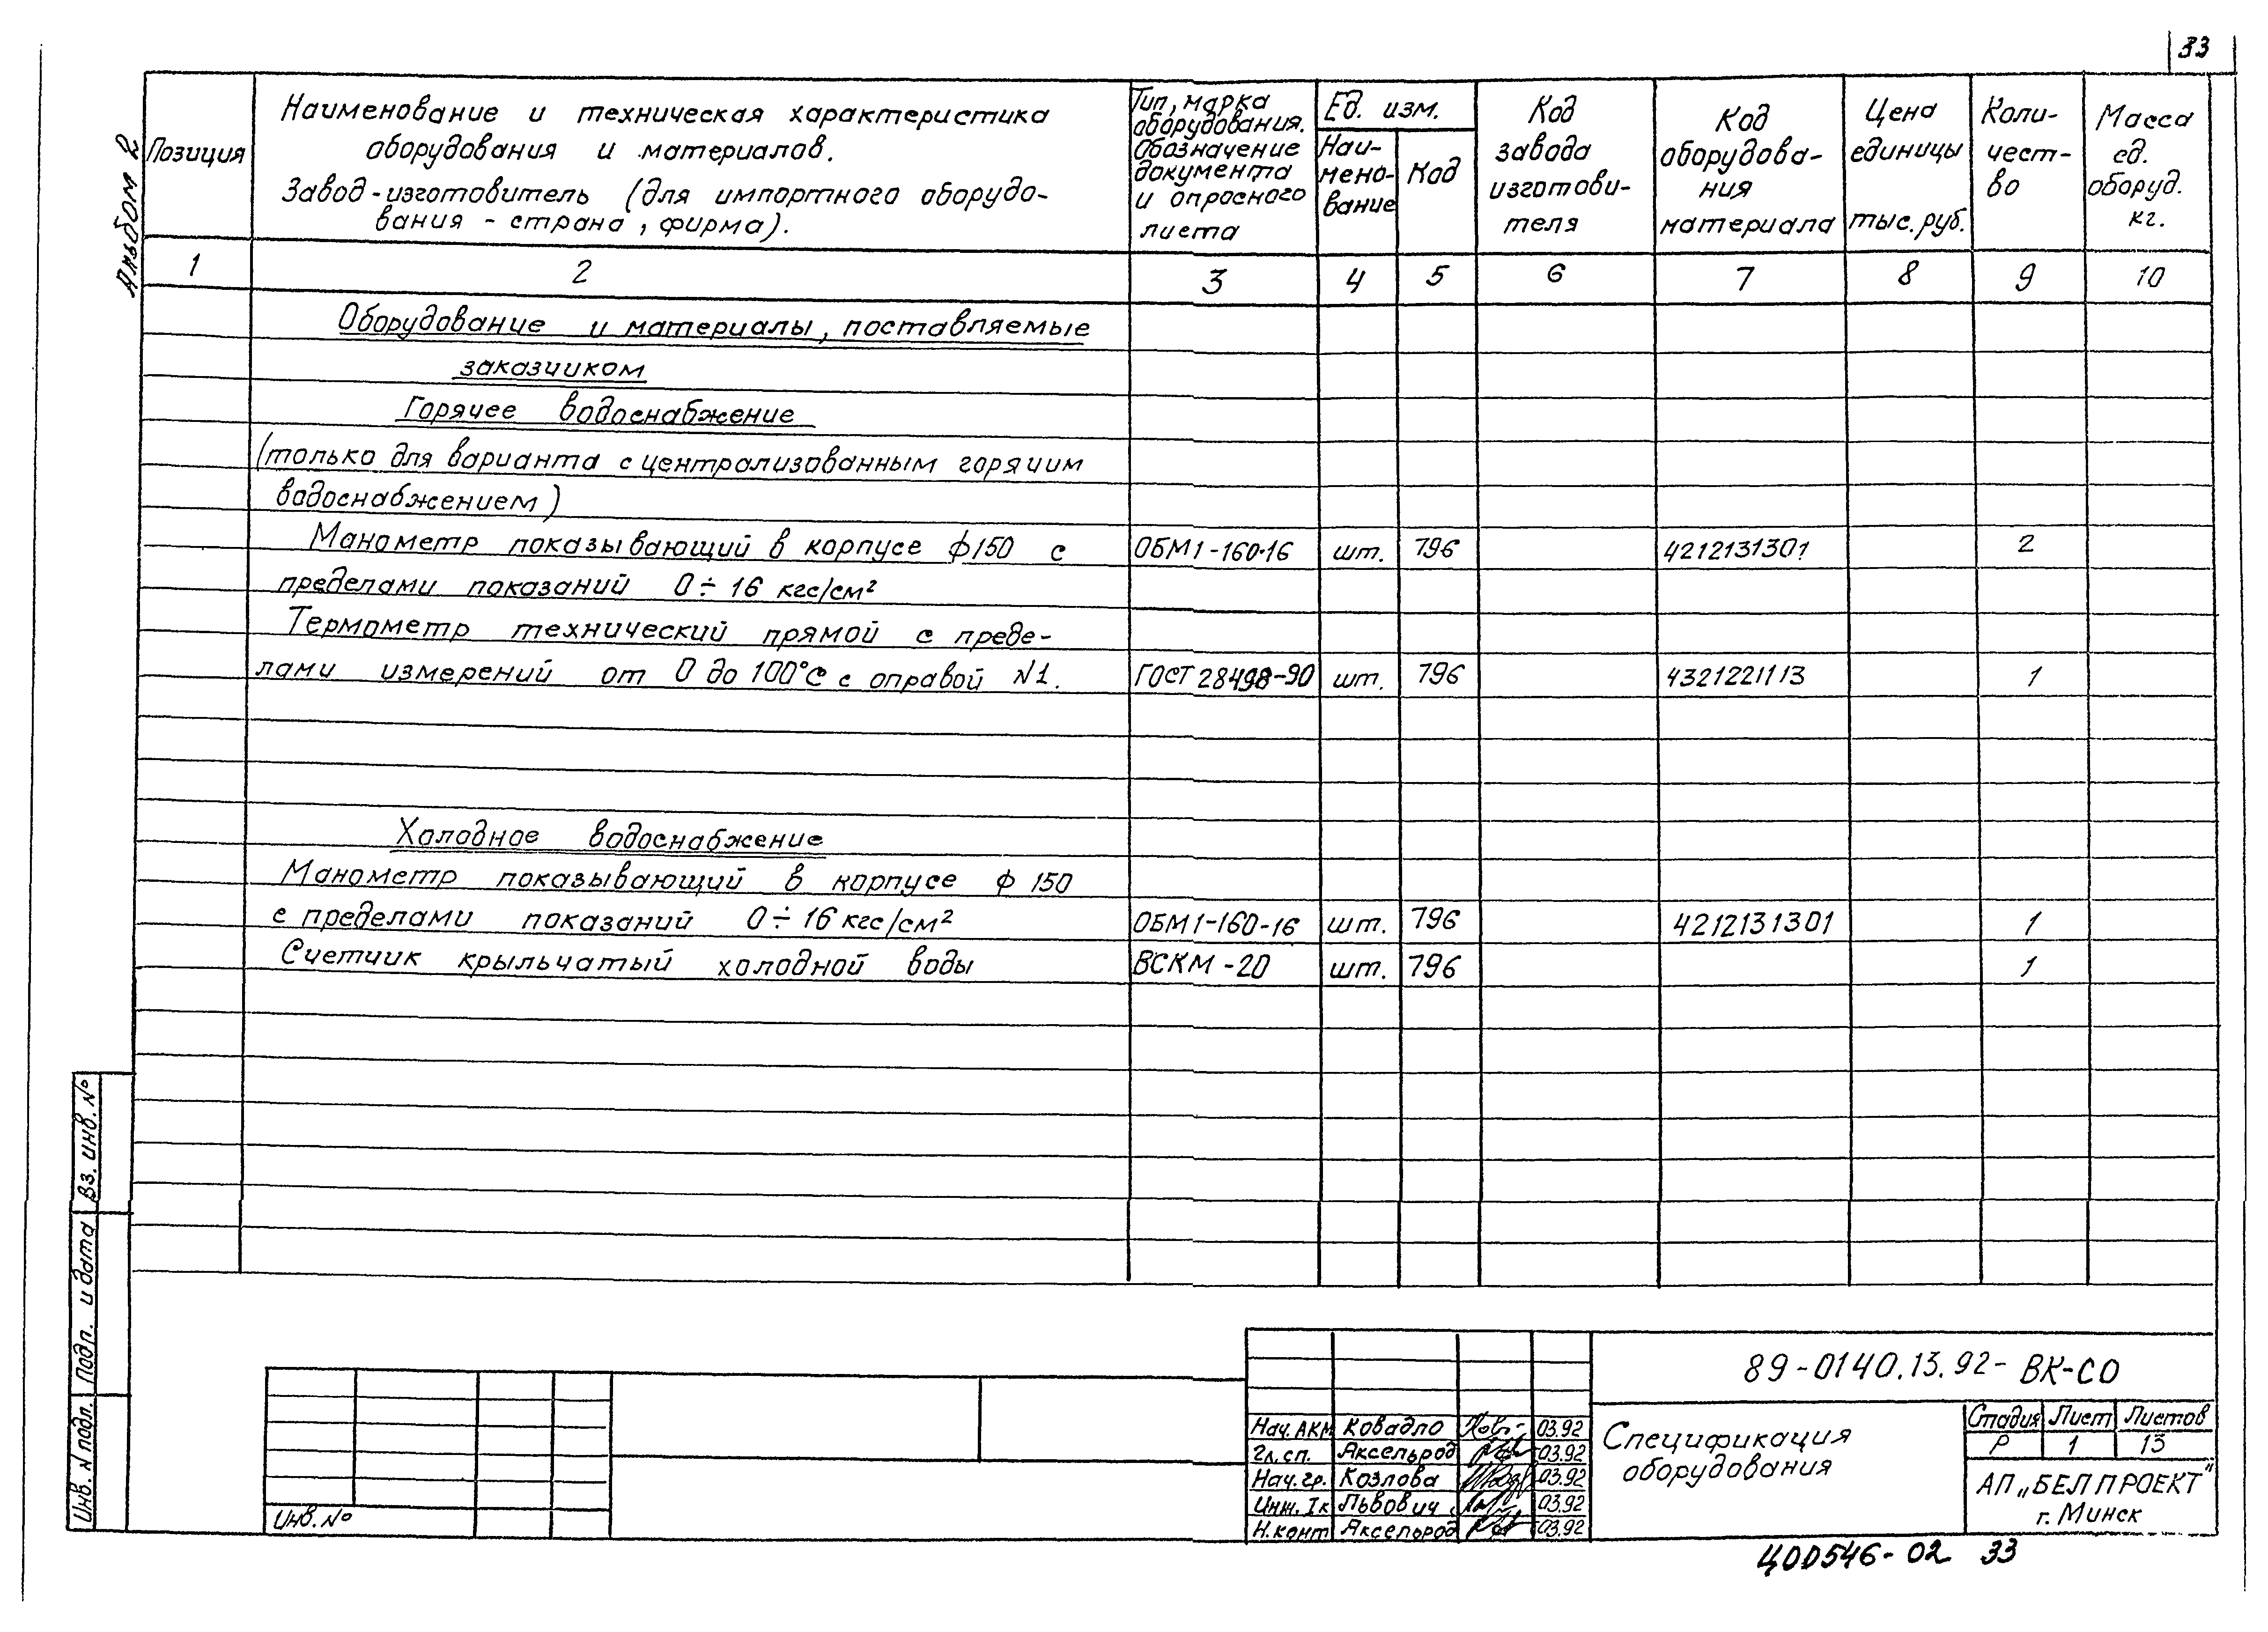 33
Альбом 2
Позиция
Наименование и техническая характеристика
оборудования и материалов.
Завод-изготовитель (для импортного оборудо-
вания - страна, фирма).
Тип, марка
оборудования.
Обозначение
документа
и опросного
листа
Ед. изм.
Наи-
мено-
вание
Код
Код
завода
изготови-
теля
Код
оборудова-
ния
материала
Цена
единицы
тыс. руб.
Коли-
чест-
во
Масса
ед.
оборуд.
кг.
1 2 3 4 5 6 7 8 9 10
Оборудование и материалы, поставляемые
заказчиком
Горячее водоснабжение
(только для варианта с централизованным горячим
водоснабжением)
Манометр показывающий в корпусе ф150 с ОБМ1-160-16 шт. 796 4212131301 2
пределами показаний 0÷16 кгс/см²
Термометр технический прямой с преде-
лами измерений от 0 до 100°С с оправой №1. ГОСТ 28498-90 шт. 796 4321221113 1
Холодное водоснабжение
Манометр показывающий в корпусе ф 150
с пределами показаний 0÷16 кгс/см² ОБМ1-160-16 шт. 796 4212131301 1
Счетчик крыльчатый холодной воды ВСКМ-20 шт. 796 1
Вз. инв. №
Подп. и дата
Инв. № подл.
Инв. №
Нач. АКМ Ковадло 03.92
Гл. сп. Аксельрод 03.92
Нач. гр. Козлова 03.92
Инж. Iк Львович 03.92
Н. конт Аксельрод 03.92
89-0140.13.92-ВК-СО
Спецификация
оборудования
Стадия Лист Листов
Р 1 13
АП „БЕЛПРОЕКТ"
г. Минск
Ц00546-02 33